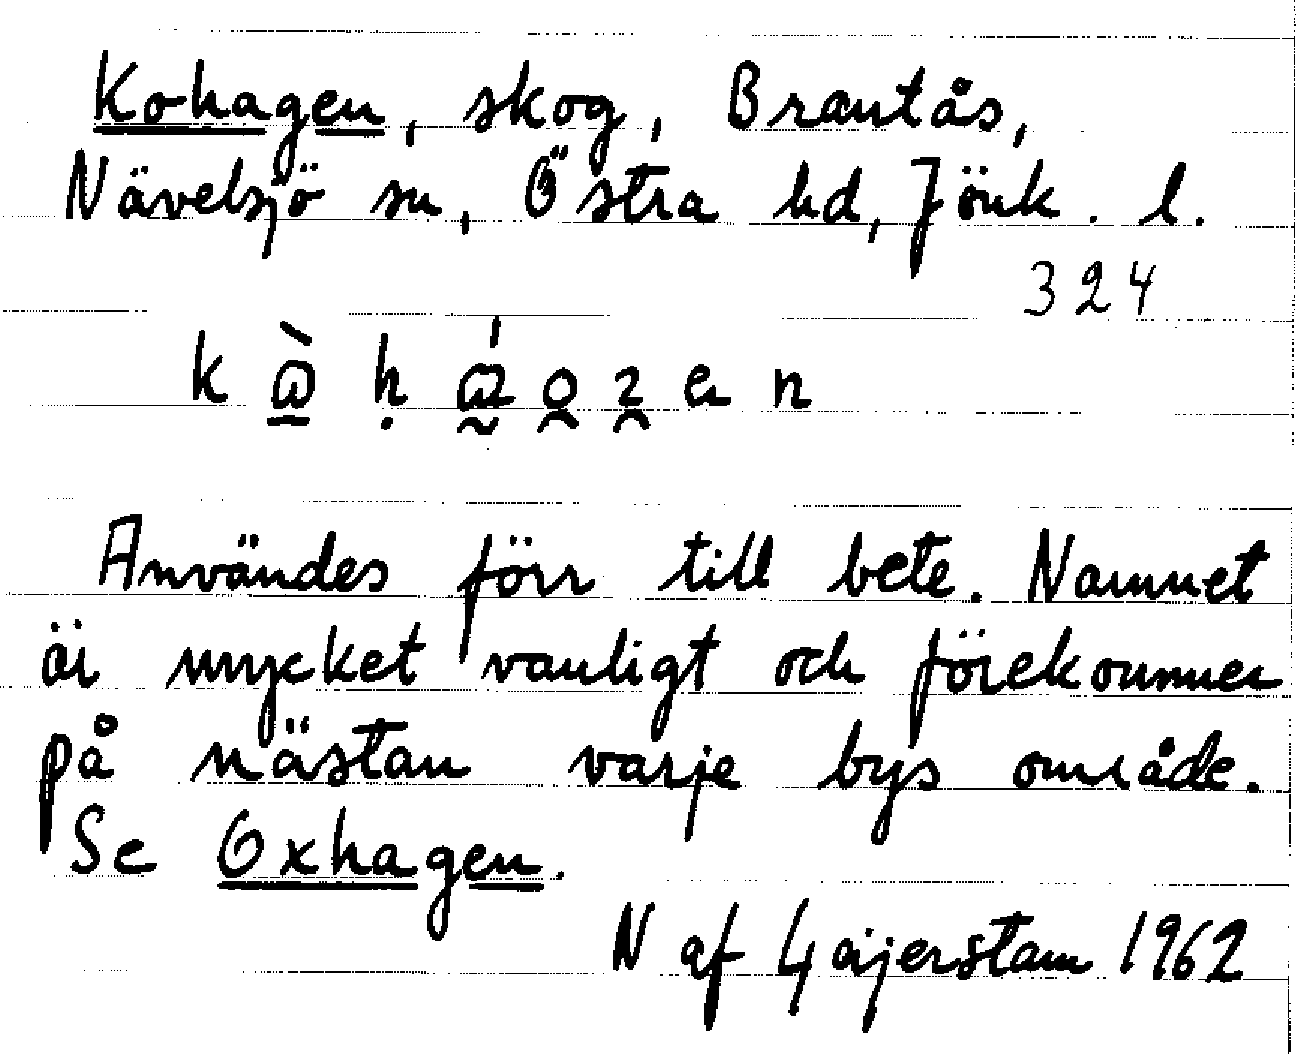 Kohagen, skog, Brantås,
Nävelsjö sn, Östra hd, Jönk. l.
324
Användes förr till bete. Namnet
är mycket vanligt och förekommer
på nästan varje bys område.
Se Oxhagen.
N af Gäijerstam 1962